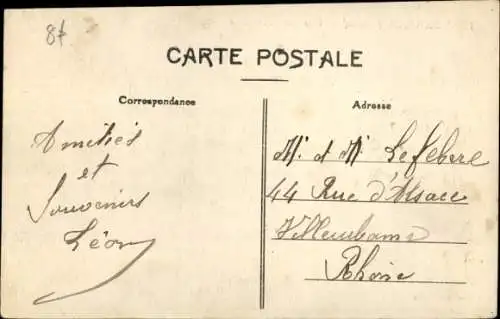 87
CARTE POSTALE
Correspondance
Adresse
Amitiés
et
Souvenirs
Léon
M. et M Lefebvre
44 Rue d'Alsace
Villeurbanne
Rhône